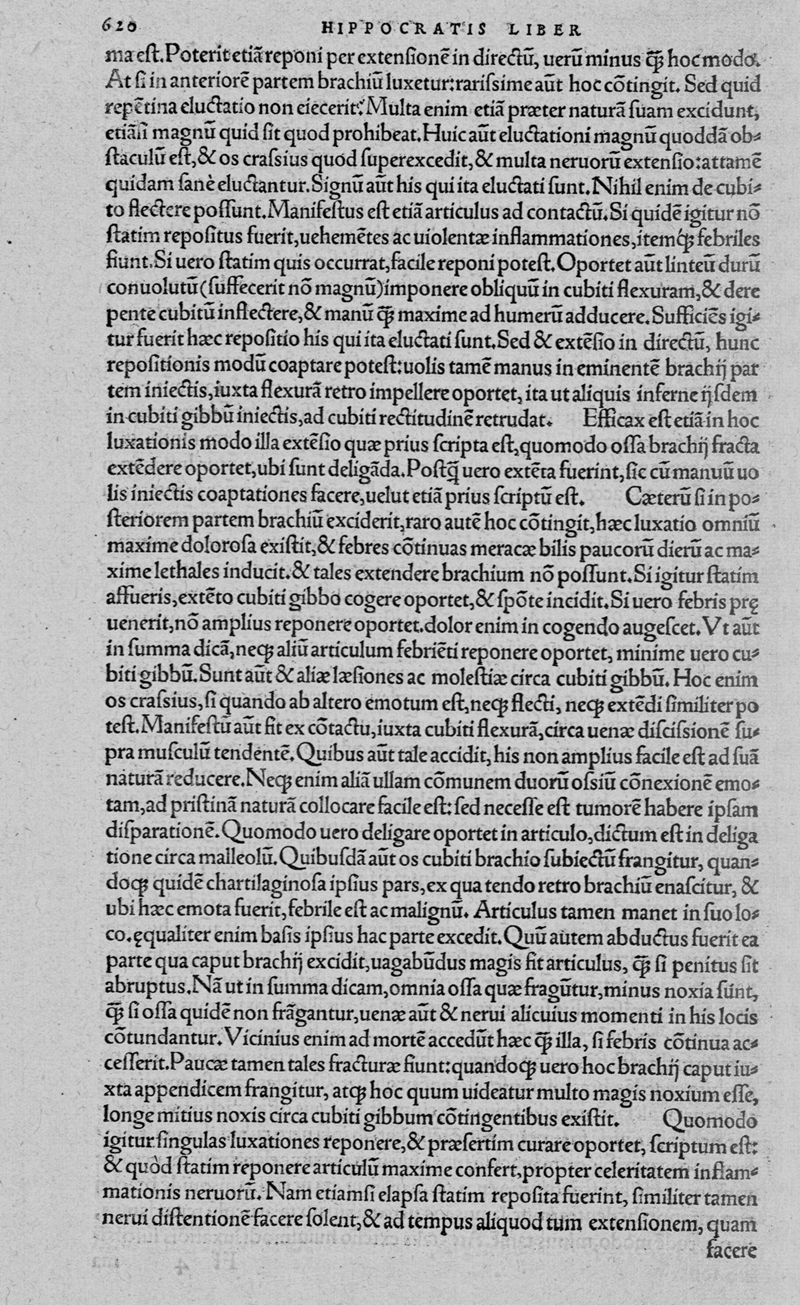 620
HIPPOCRATIS LIBER
ma est. Poterit etiã reponi per extensionẽ in directũ, uerũ minus ꝙ̃ hoc modo.
At si in anteriorẽ partem brachiũ luxetur: rarissime aũt hoc cõtingit. Sed quid
repẽtina eluctatio non eiecerit? Multa enim etiã præter naturã suam excidunt,
etiãsi magnũ quid sit quod prohibeat. Huic aũt eluctationi magnũ quoddã ob⸗
staculũ est, & os crassius quod superexcedit, & multa neruorũ extensio: attamẽ
quidam sanè eluctantur. Signũ aũt his qui ita eluctati sunt. Nihil enim de cubi⸗
to flectere possunt. Manifestus est etiã articulus ad contactũ. Si quidẽ igitur nõ
statim repositus fuerit, uehemẽtes ac uiolentæ inflammationes, itemq́ꝫ febriles
fiunt. Si uero statim quis occurrat, facile reponi potest. Oportet aũt linteũ durũ
conuolutũ (suffecerit nõ magnũ) imponere obliquũ in cubiti flexuram, & dere
pente cubitũ inflectere, & manũ ꝙ̃ maxime ad humerũ adducere. Sufficiẽs igi⸗
tur fuerit hæc repositio his qui ita eluctati sunt. Sed & extẽsio in directũ, hunc
repositionis modũ coaptare potest: uolis tamẽ manus in eminentẽ brachij par
tem iniectis, iuxta flexurã retro impellere oportet, ita ut aliquis inferne ijsdem
in cubiti gibbũ iniectis, ad cubiti rectitudinẽ retrudat. Efficax est etiã in hoc
luxationis modo illa extẽsio quæ prius scripta est, quomodo ossa brachij fracta
extẽdere oportet, ubi sunt deligãda. Postꝙ̃ uero extẽta fuerint, sic cũ manuũ uo
lis iniectis coaptationes facere, uelut etiã prius scriptũ est. Cæterũ si in po⸗
steriorem partem brachiũ exciderit, raro autẽ hoc cõtingit, hæc luxatio omniũ
maxime dolorosa existit, & febres cõtinuas meracæ bilis paucorũ dierũ ac ma⸗
xime lethales inducit. & tales extendere brachium nõ possunt. Si igitur statim
affueris, extẽto cubiti gibbo cogere oportet, & spõte incidit. Si uero febris prę
uenerit, nõ amplius reponere oportet. dolor enim in cogendo augescet. Vt aũt
in summa dicã, neqꝫ aliũ articulum febriẽti reponere oportet, minime uero cu⸗
biti gibbũ. Sunt aũt & aliæ læsiones ac molestiæ circa cubiti gibbũ. Hoc enim
os crassius, si quando ab altero emotum est, neqꝫ flecti, neqꝫ extẽdi similiter po
test. Manifestũ aũt fit ex cõtactu, iuxta cubiti flexurã, circa uenæ discissionẽ su⸗
pra musculũ tendentẽ. Quibus aũt tale accidit, his non amplius facile est ad suã
naturã reducere. Neqꝫ enim aliã ullam cõmunem duorũ ossiũ cõnexionẽ emo⸗
tam, ad pristinã naturã collocare facile est: sed necesse est tumorẽ habere ipsam
disparationẽ. Quomodo uero deligare oportet in articulo, dictum est in deliga
tione circa malleolũ. Quibusdã aũt os cubiti brachio subiectũ frangitur, quan⸗
doqꝫ quidẽ chartilaginosa ipsius pars, ex qua tendo retro brachiũ enascitur, &
ubi hæc emota fuerit, febrile est ac malignũ. Articulus tamen manet in suo lo⸗
co. ęqualiter enim basis ipsius hac parte excedit. Quũ autem abductus fuerit ea
parte qua caput brachij excidit, uagabũdus magis fit articulus, ꝙ̃ si penitus sit
abruptus. Nã ut in summa dicam, omnia ossa quæ fragũtur, minus noxia sunt,
ꝙ̃ si ossa quidẽ non frãgantur, uenæ aũt & nerui alicuius momenti in his locis
cõtundantur. Vicinius enim ad mortẽ accedũt hæc ꝙ̃ illa, si febris cõtinua ac⸗
cesserit. Paucæ tamen tales fracturæ fiunt: quandoqꝫ uero hoc brachij caput iu⸗
xta appendicem frangitur, atqꝫ hoc quum uideatur multo magis noxium esse,
longe mitius noxis circa cubiti gibbum cõtingentibus existit. Quomodo
igitur singulas luxationes reponere, & præsertim curare oportet, scriptum est:
& quòd statim reponere articulũ maxime confert, propter celeritatem inflam⸗
mationis neruorũ. Nam etiamsi elapsa statim reposita fuerint, similiter tamen
nerui distentionẽ facere solent, & ad tempus aliquod tum extensionem, quam
facere